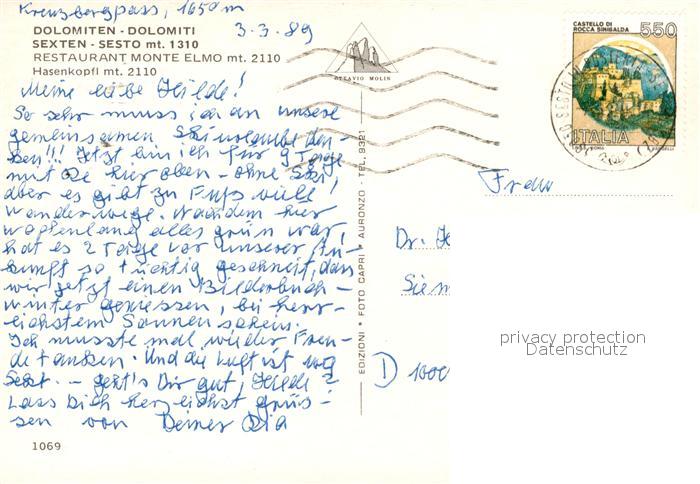 Kreuzbergpass, 1650 m
3-3-89
DOLOMITEN - DOLOMITI
SEXTEN - SESTO mt. 1310
RESTAURANT MONTE ELMO mt. 2110
Hasenkopfl mt. 2110
OTTAVIO MOLIN
Meine liebe Hilde!
So sehr muss ich an unsere
gemeinsamen Skiurlaube den-
ken!!! Jetzt bin ich für 9 Tage
mit hier oben - ohne Ski,
aber es gibt zu Fuß viele
Wanderwege. Nachdem hier
wochenlang alles grün war,
hat es 2 Tage vor unserer An-
kunft so tüchtig geschneit, dass
wir jetzt einen Bilderbuch-
winter geniessen, bei herr-
lichstem Sonnenschein.
Ich musste mal wieder Freu-
de tanken. Und die Luft ist
- geht's Dir gut, Hilde?
Lass Dich herzlichst grüs-
sen von Deiner
1069
EDIZIONI * FOTO CAPRI * AURONZO - TEL. 9321
CASTELLO DI
ROCCA SINIBALDA
550
ITALIA
ROMA
Frau
Dr.
D 1000
privacy protection
Datenschutz